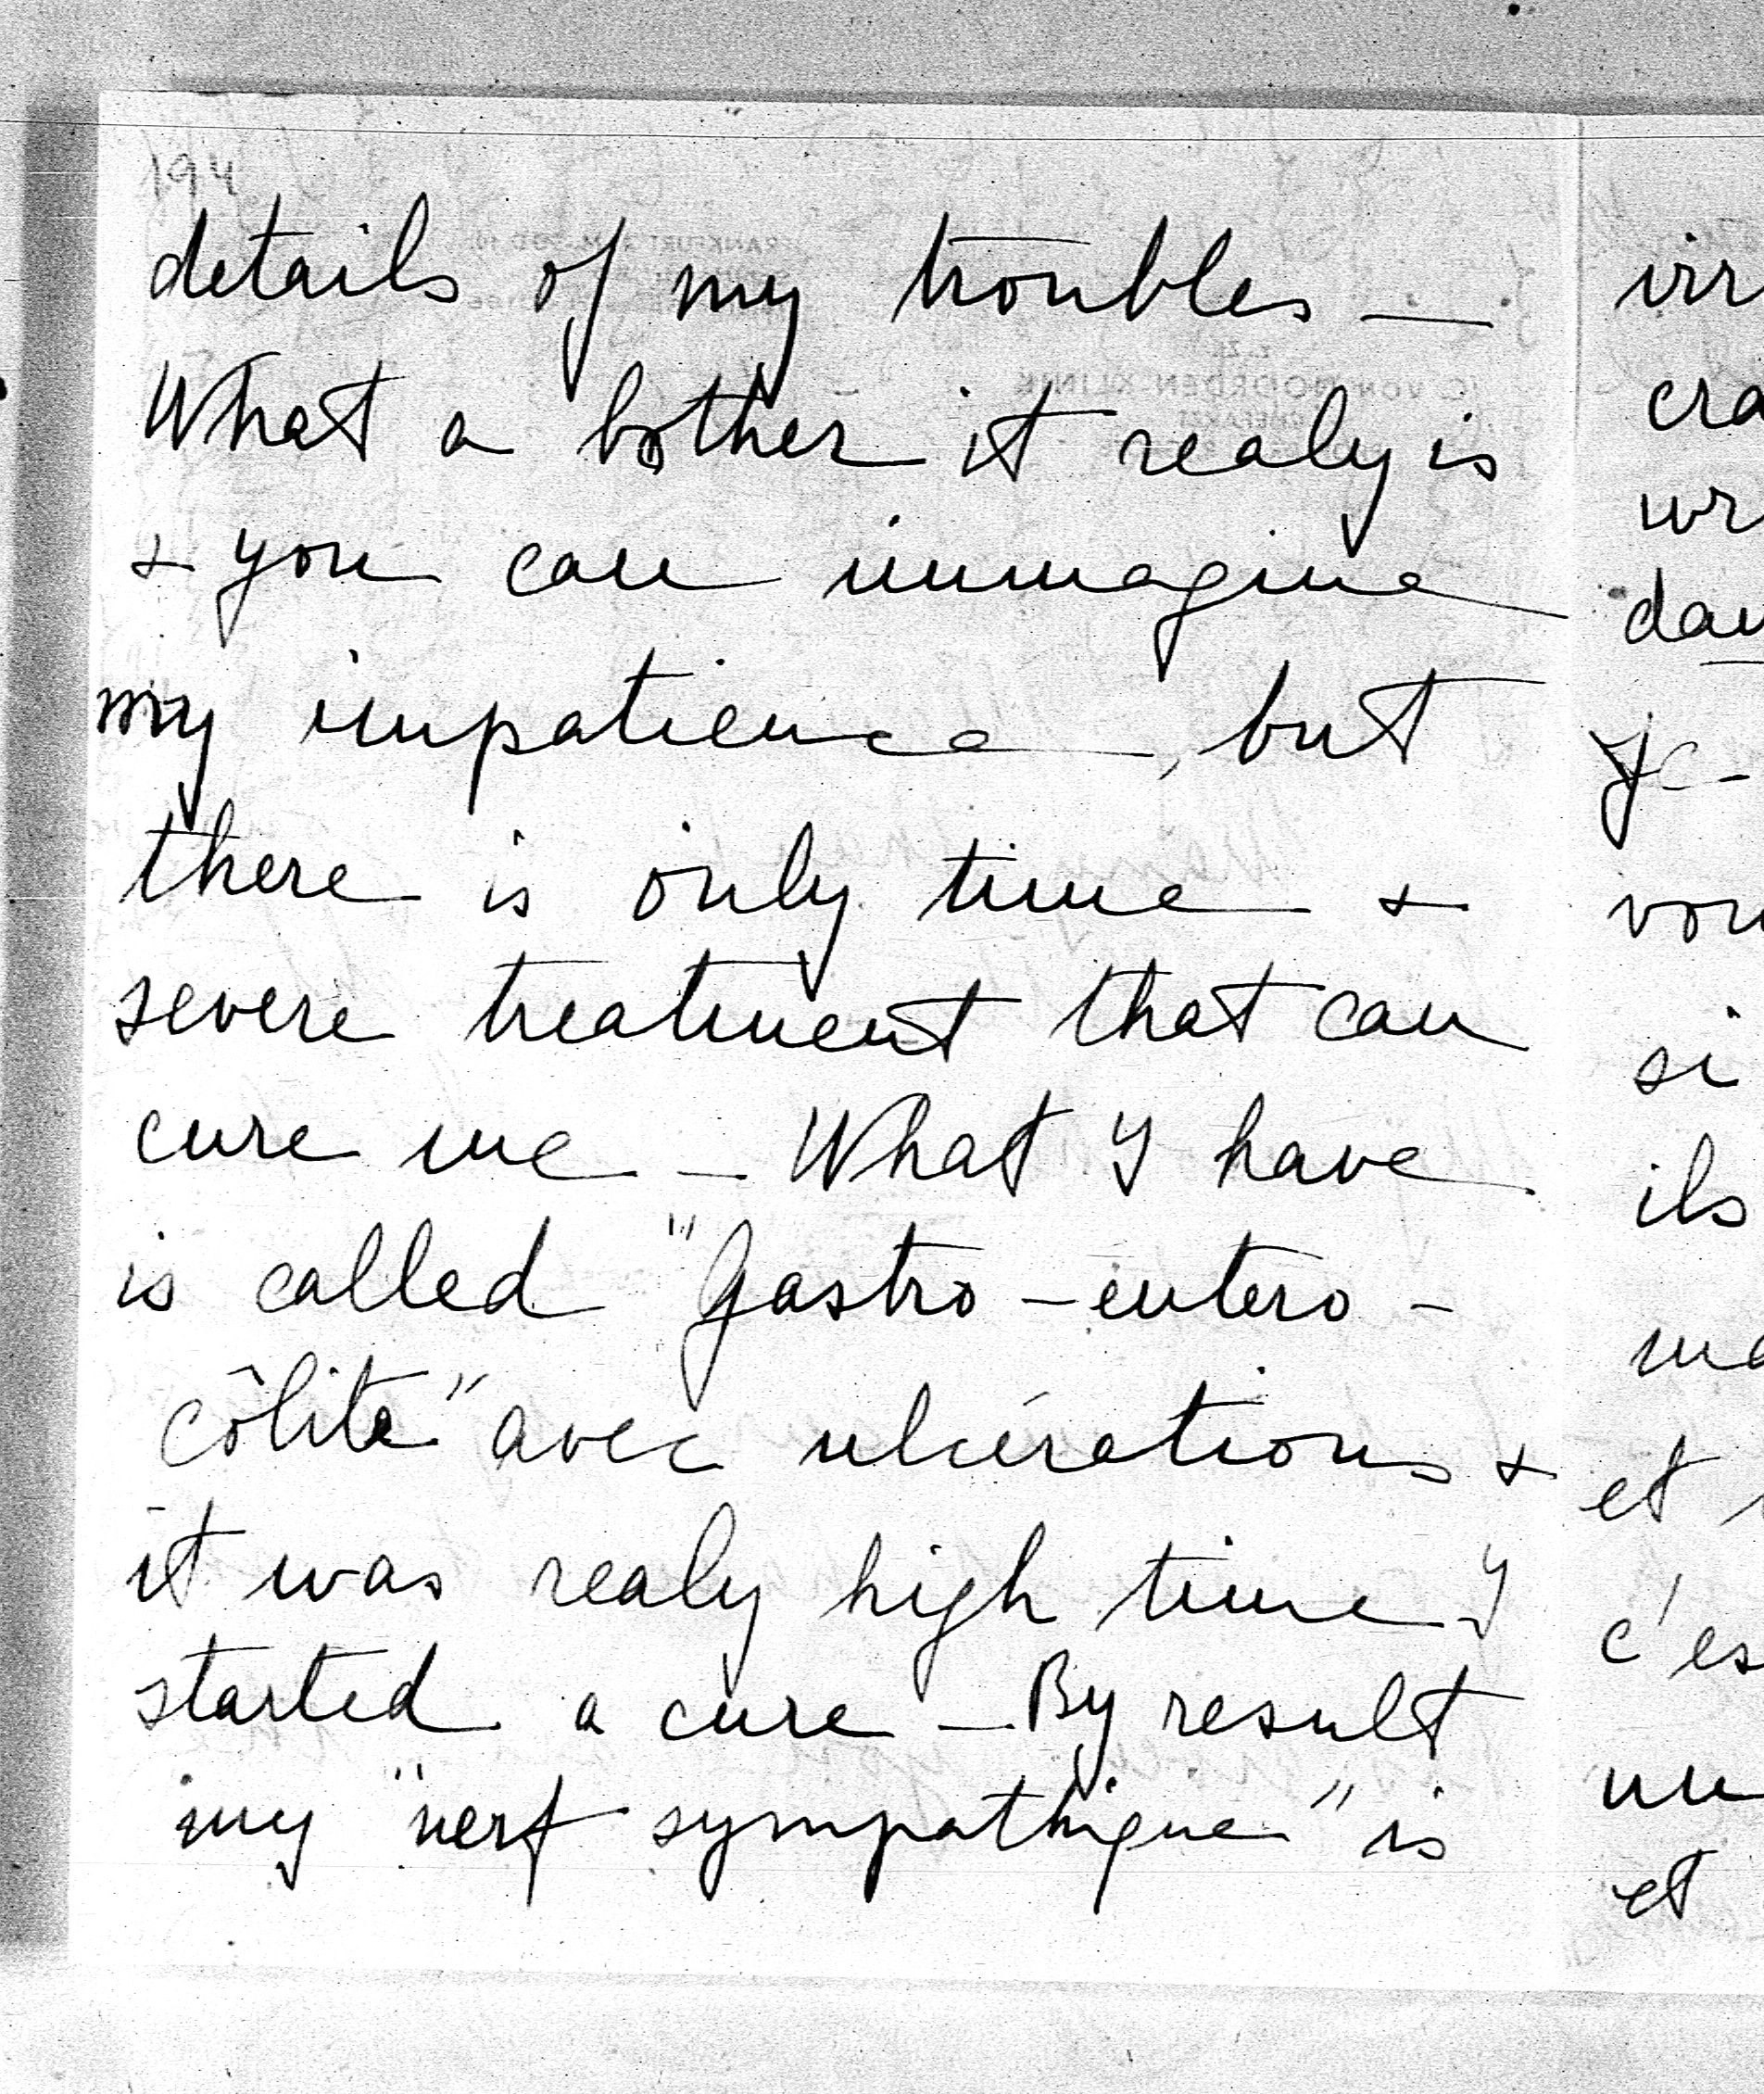 194
details of my troubles —
What a bother it realy is
+ you can immagine
my impatience, but
there is only time +
severe treatment that can
cure me — What I have
is called "Gastro-entero-
côlite" avec ulcérations +
it was realy high time I
started a cure — By result
my "nerf sympathique" is
irr
cra
wr
dau
je -
vou
si
ils
ma
et
c'es
un
et